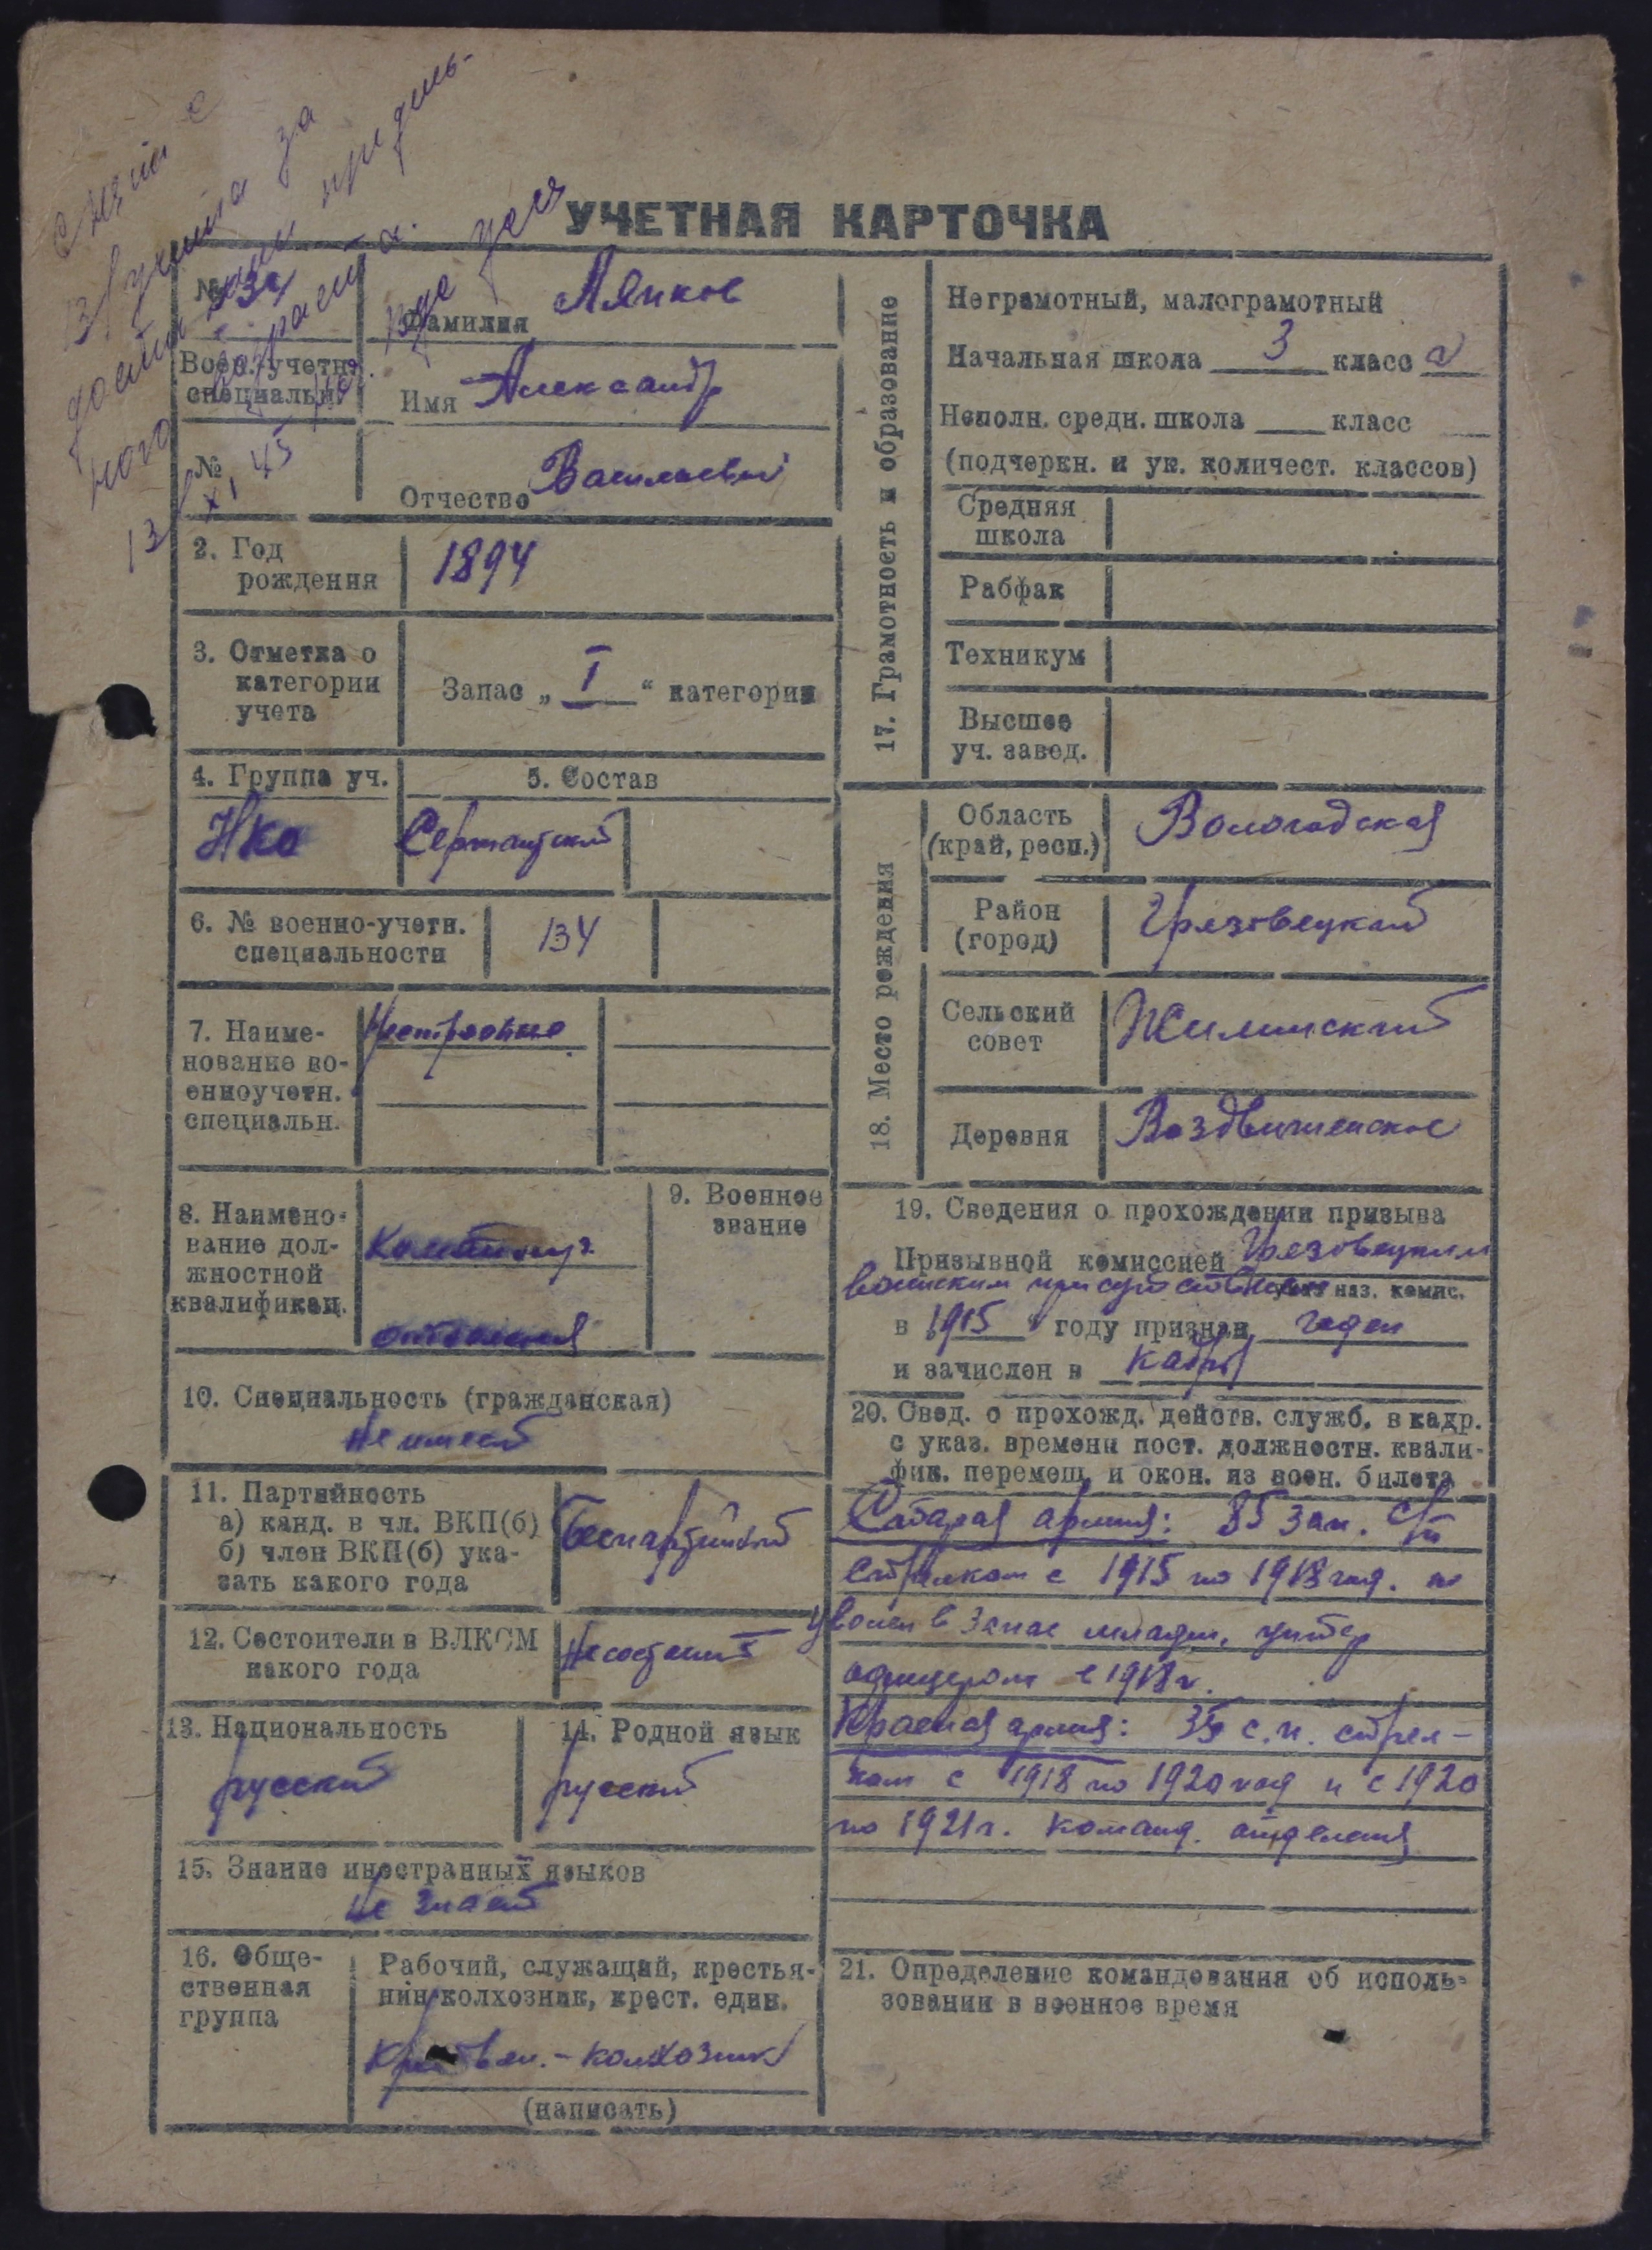 Снят с
В/учета за
достижением предель-
ного возраста.
13/XI 45
УЧЕТНАЯ КАРТОЧКА
№ 134
Воен. учетн.
специальн.
№
Фамилия Ляпков
Имя Александр
Отчество Васильевич
2. Год
рождения
1894
3. Отметка о
категории
учета
Запас „ I “ категории
4. Группа уч.
НКО
5. Состав
Сержантский
6. № военно-учетн.
специальности
134
7. Наиме-
нование во-
енноучетн.
специальн.
8. Наимено-
вание дол-
жностной
квалификац.
отделения
9. Военное
звание
10. Специальность (гражданская)
Не имеет
11. Партийность
а) канд. в чл. ВКП(б)
б) член ВКП(б) ука-
зать какого года
Беспартийный
12. Состоит ли в ВЛКСМ
какого года
Не состоит
13. Национальность
русский
14. Родной язык
русский
15. Знание иностранных языков
Не знает
16. Обще-
ственная
группа
Рабочий, служащий, крестья-
нин колхозник, крест. един.
колхозник
(написать)
17. Грамотность и образование
Неграмотный, малограмотный
Начальная школа 3 класс а
Неполн. средн. школа класс
(подчеркн. и ук. количест. классов)
Средняя
школа
Рабфак
Техникум
Высшее
уч. завед.
18. Место рождения
Область
(край, респ.)
Вологодская
Район
(город)
Грязовецкий
Сельский
совет
Жилинский
Деревня
Воздвиженское
19. Сведения о прохождении призыва
Призывной комиссией Грязовецким
воинским присутствием
наз. комис.
в 1915 году признан годен
и зачислен в кадры
20. Свед. о прохожд. действ. служб. в кадр.
с указ. времени пост. должностн. квали-
фик. перемещ. и окон. из воен. билета
Старая армия: 85 зап. с/п
стрелком с 1915 по 1918 год.
уволен в запас младш. унтер
офицером в 1918 г.
Красная армия: с.п. стрел-
ком с 1918 по 1920 год и с 1920
по 1921 г. команд. отделения
21. Определение командования об исполь-
зовании в военное время